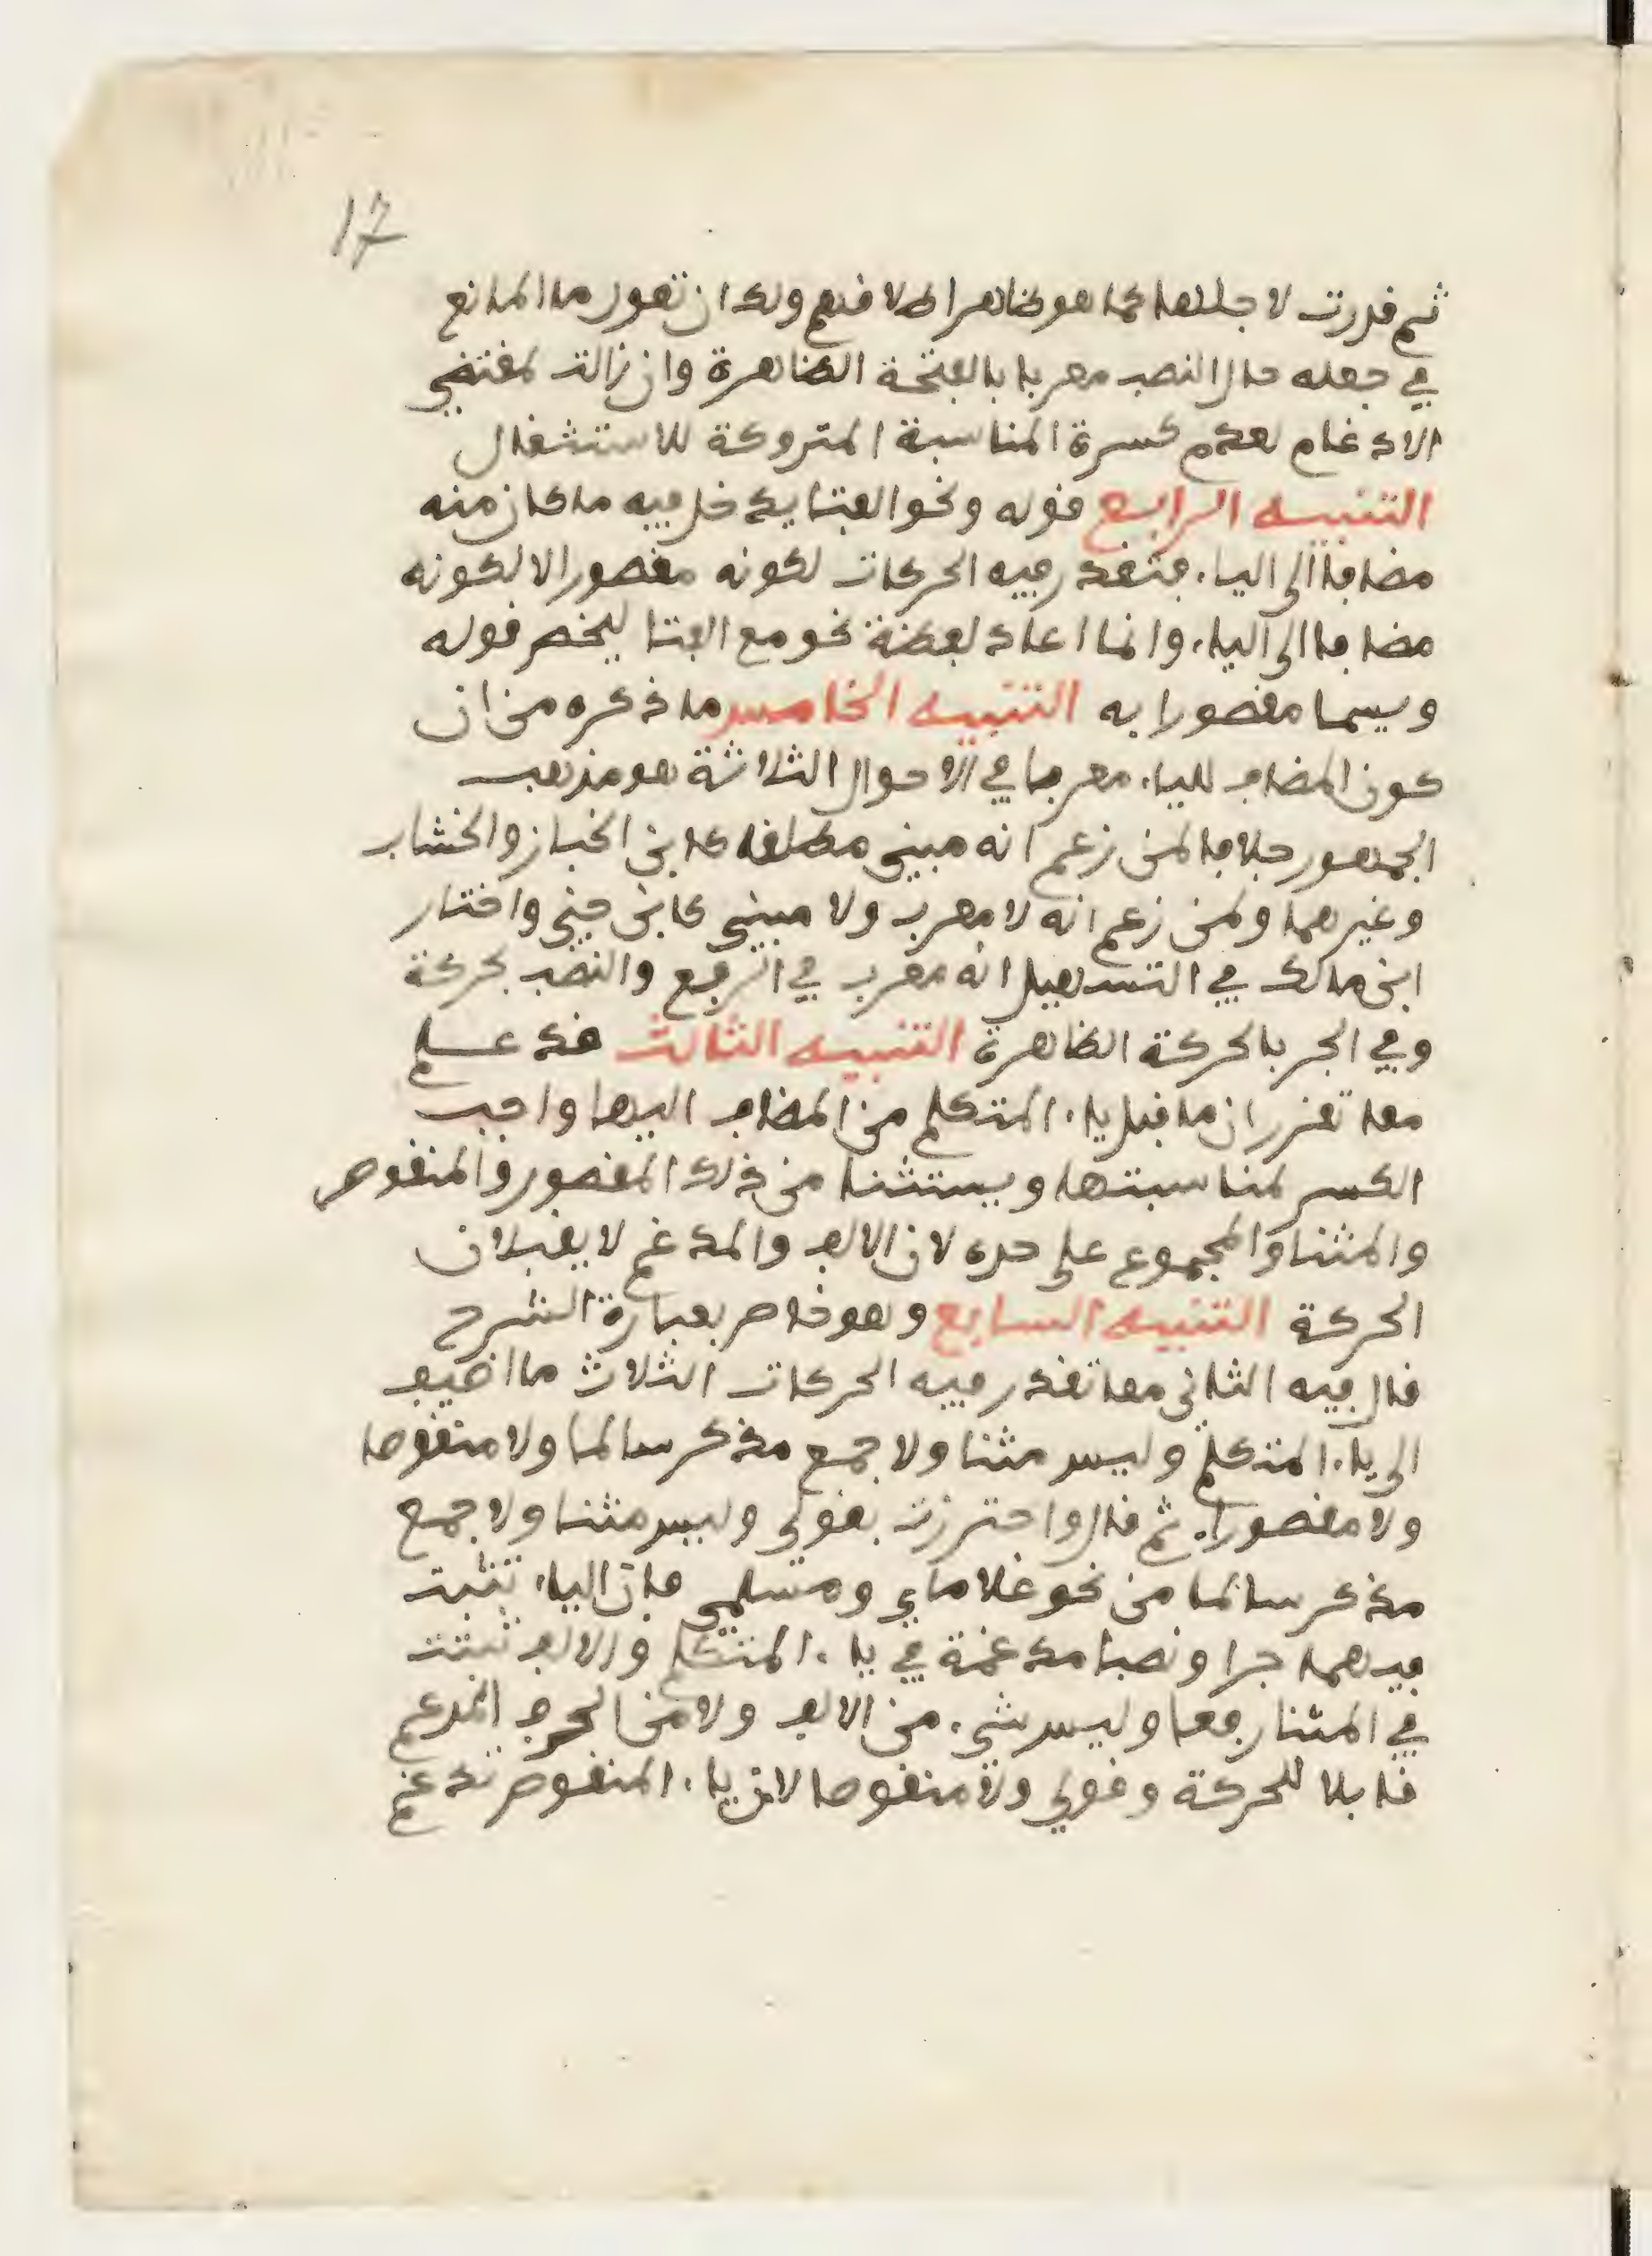 17
ثم قدرت لاجلها كما هو ظاهر اطلاقهم ولك ان تقول ما المانع
في جعله حال النصب معربا بالفتحة الظاهرة وان زالت لمقتضى
الادغام لعدم كسرة المناسبة المتروكة للاستثقال
التنبيه الرابع قوله ونحو الفتا يدخل فيه ما كان منه
مضافا الى الياء فتقدر فيه الحركات لكونه مقصورا لا لكونه
مضافا الى الياء وانما اعاد لفظة نحو مع الفتا ليخص قوله
ويسما مقصورا به التنبيه الخامس ما ذكره من ان
كون المضاف للياء معربا في الاحوال الثلاثة هو مذهب
الجمهور خلافا لمن زعم انه مبني مطلقا كابن الخباز والخشاب
وغيرهما ولمن زعم انه لا معرب ولا مبني كابن جني واختار
ابن مالك في التسهيل انه معرب في الرفع والنصب بحركة
وفي الجر بالحركة الظاهرة التنبيه الثالث قد علم
مما تقرر ان ما قبل ياء المتكلم من المضاف اليها واجب
الكسر لمناسبتها ويستثنا من ذلك المقصور والمنقوص
والمثنا والمجموع على حده لان الالف والمدغم لا يقبلان
الحركة التنبيه السابع وهو خاص بعبارة الشرح
قال فيه الثاني مما تقدر فيه الحركات الثلاث ما اضيف
الى ياء المتكلم وليس مثنا ولا جمع مذكر سالما ولا منقوصا
ولا مقصورا ثم قال واحترزت بقولي وليس مثنا ولا جمع
مذكر سالما من نحو غلاماي ومسلمي فان الياء تثبت
فيهما جرا ونصبا مدغمة في ياء المتكلم والالف تثبت
في المثنا رفعا وليس شيء من الالف ولا من الحرف المدغم
قابلا للحركة وقولي ولا منقوصا لان ياء المنقوص تدغم